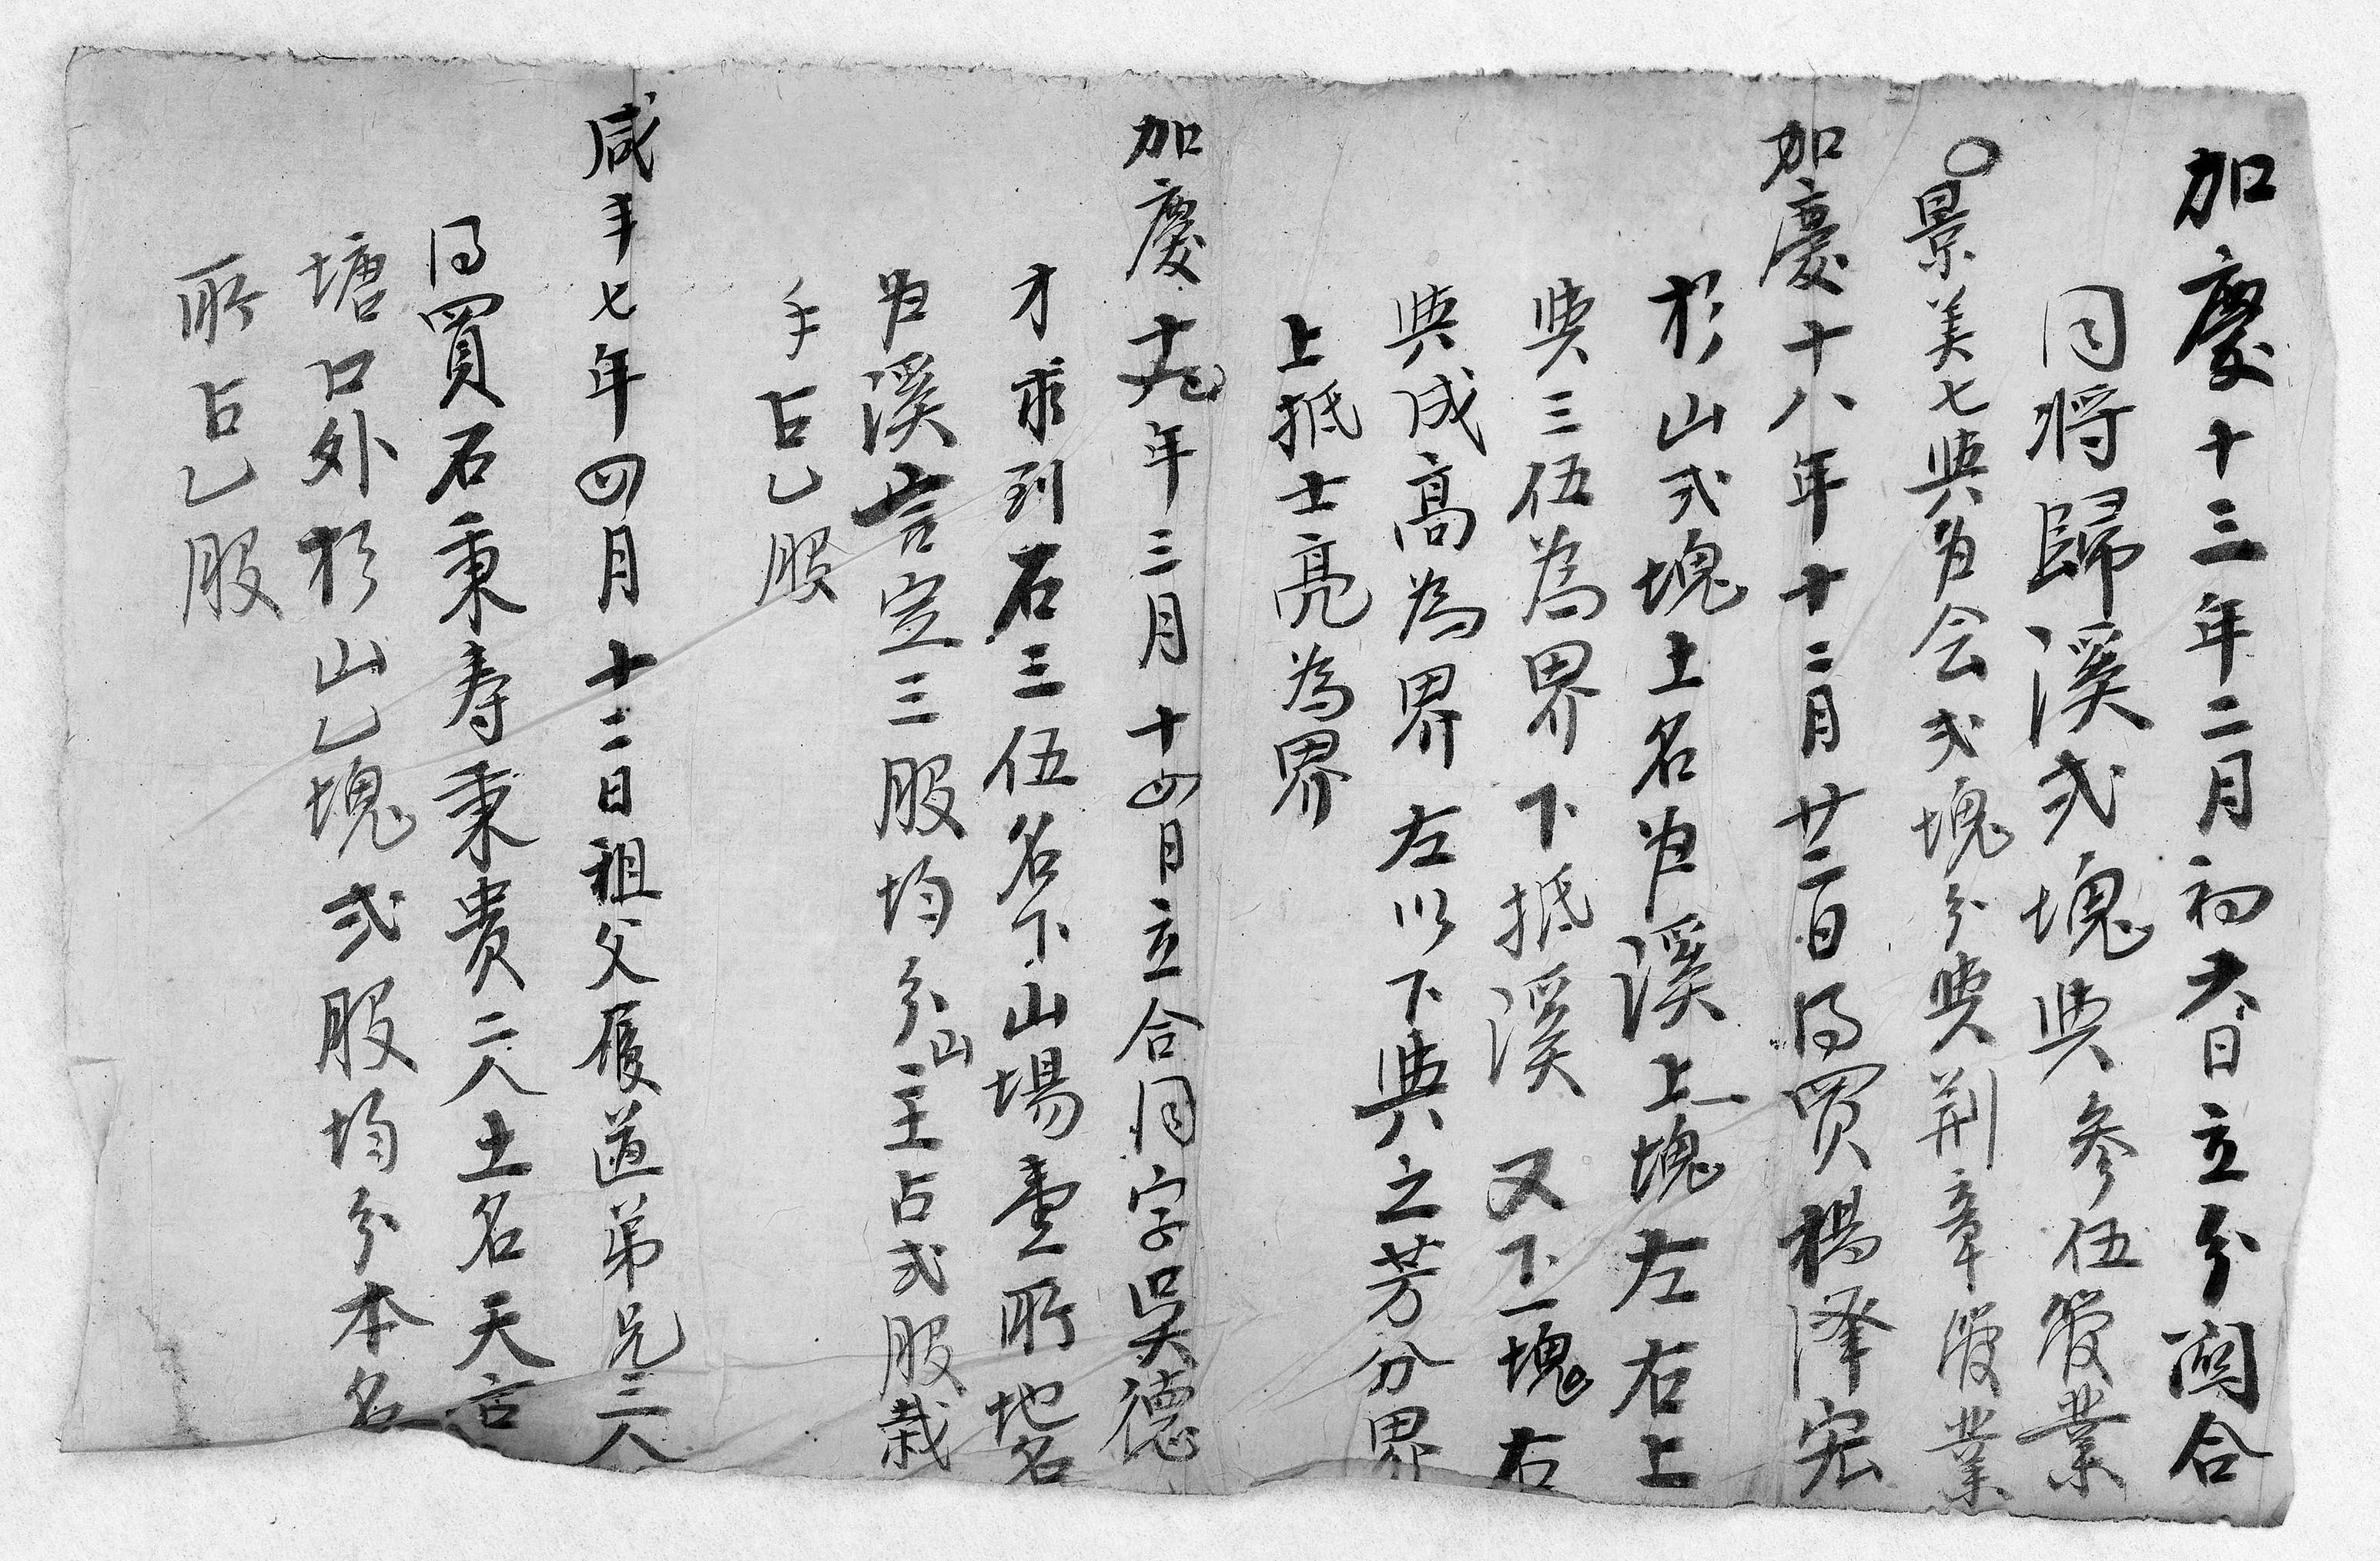 加慶十三年二月初六日立分關合
同将歸溪弍塊與參伍管業
〇景美七與为会弍塊分與荆章管業
加慶十八年十二月廿二日得買楊泽宏
杉山弍塊土名为溪上一塊左右上
與三伍為界下抵溪又下一塊右
與成高為界左以下與之芳分界
上抵士亮為界
加慶十九年三月十四日立合同字吳德
才求到石三伍名下山場壹所地名
为溪言定三股均分山主占弍股栽
手占乙股
咸丰七年四月十二日祖父履道弟兄三人
得買石秉寿秉貴二人土名天言
塘口外杉山乙塊弍股均分本名
所占乙股